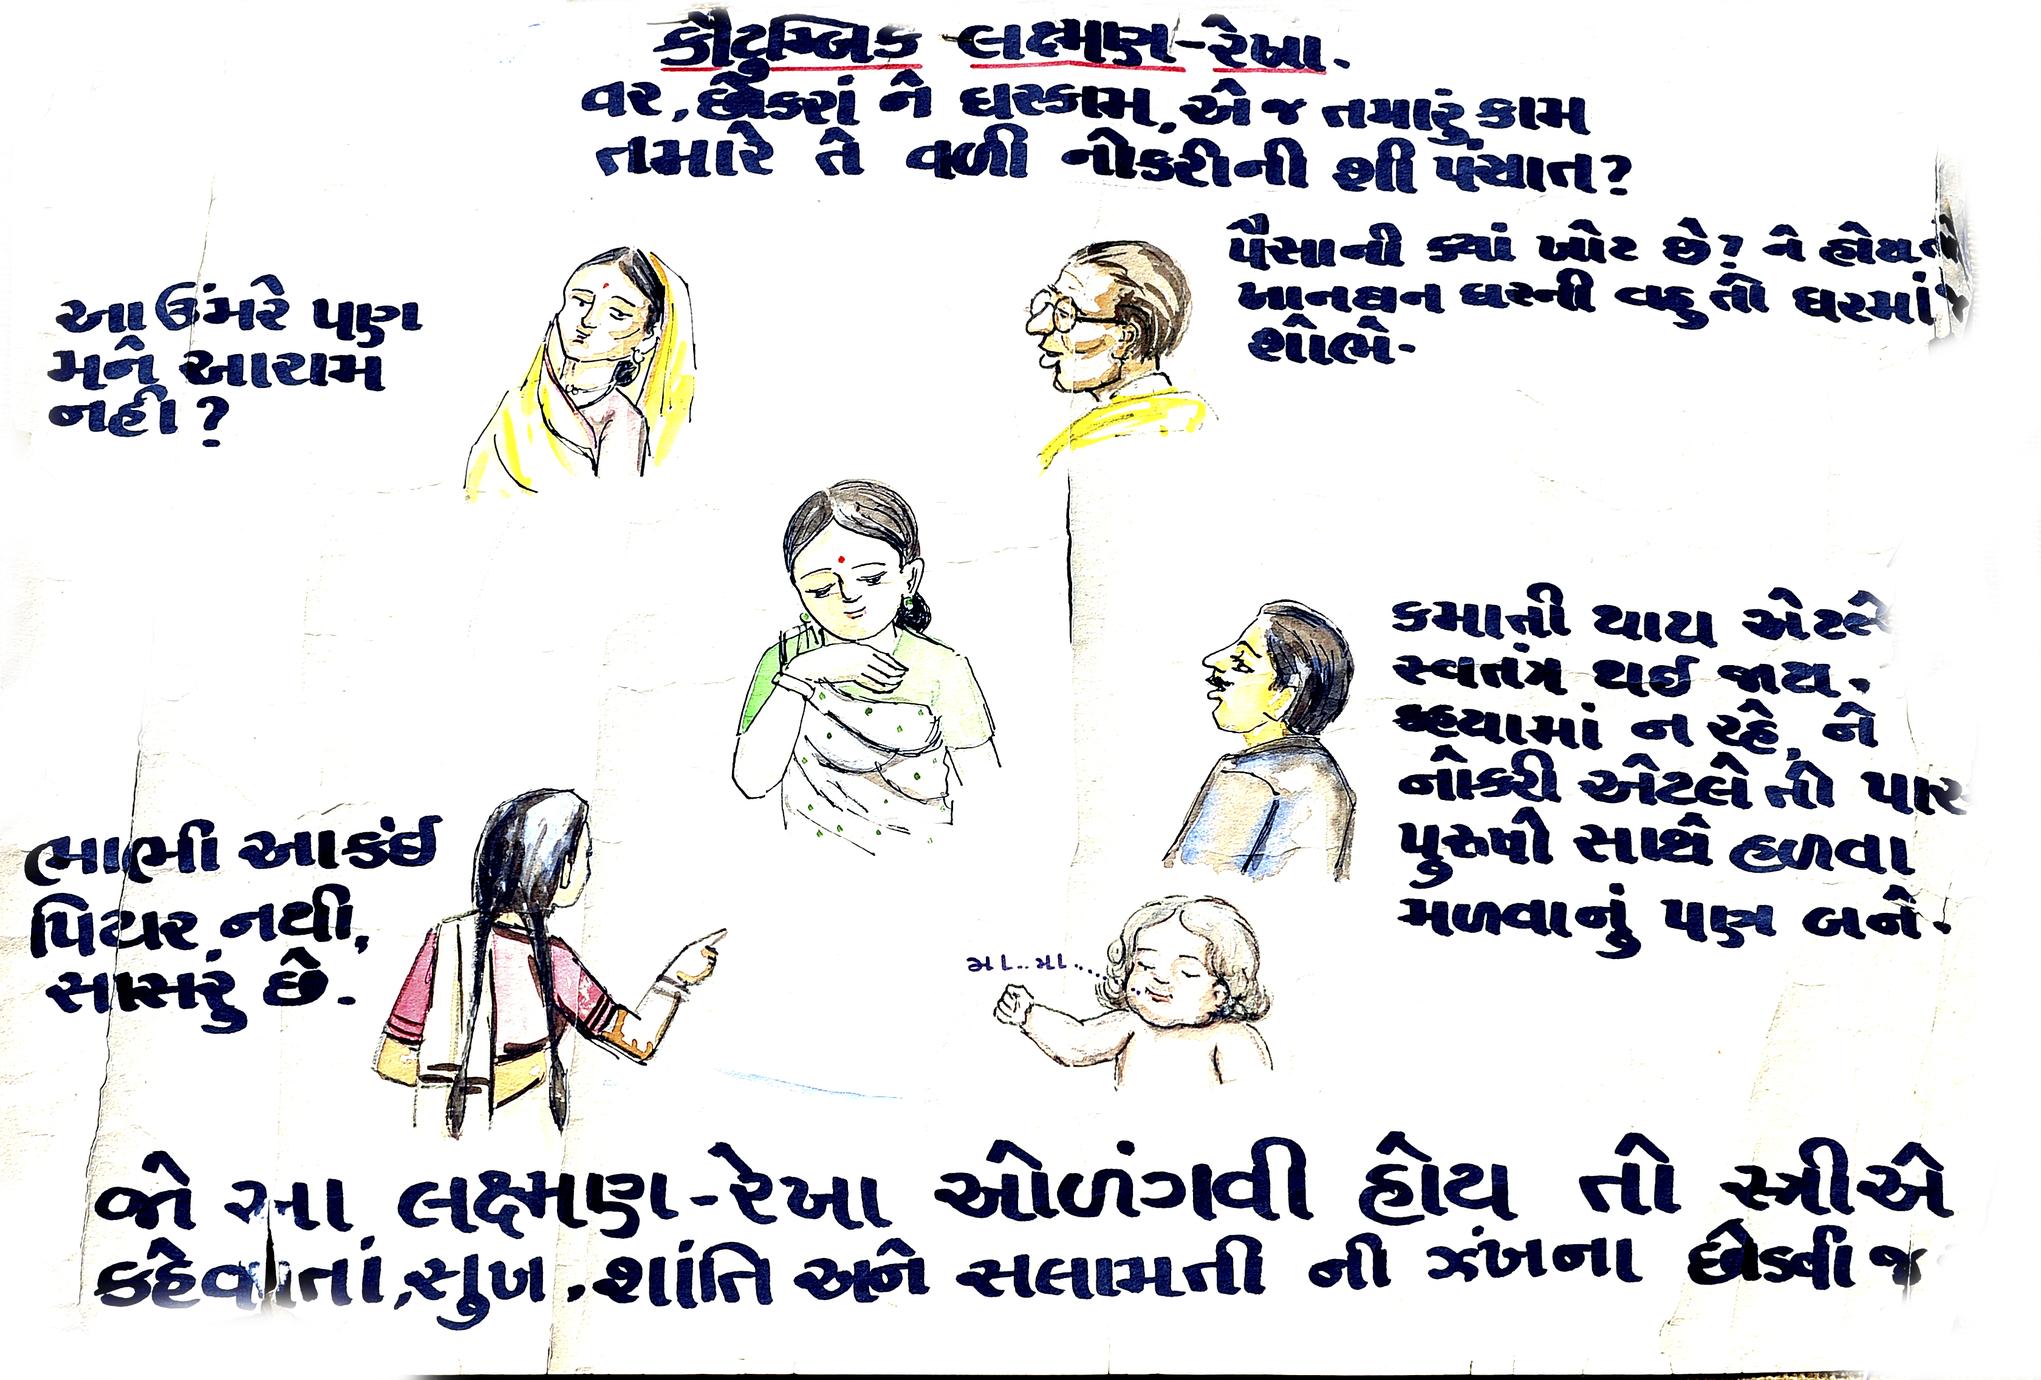 કૌટુમ્બિક લક્ષ્મણ-રેખા.
વર, છોકરાં ને ઘરકામ, એ જ તમારું કામ
તમારે તે વળી નોકરીની શી પંચાત?
પૈસાની ક્યાં ખોટ છે? ને હોય તોયે
ખાનદાન ઘરની વહુ તો ઘરમાં જ
શોભે.
આ ઉંમરે પણ
મને આરામ
નહીં?
કમાતી થાય એટલે
સ્વતંત્ર થઈ જાય.
કહયામાં ન રહે, ને
નોકરી એટલે તો પાર
પુરુષો સાથે હળવા
મળવાનું પણ બને.
ભાભી આ કંઈ
પિયર નથી,
સાસરું છે.
મા.. મા.....
જો આ લક્ષ્મણ-રેખા ઓળંગવી હોય તો સ્ત્રીએ
કહેવાતાં, સુખ, શાંતિ અને સલામતી ની ઝંખના છોડવી જ